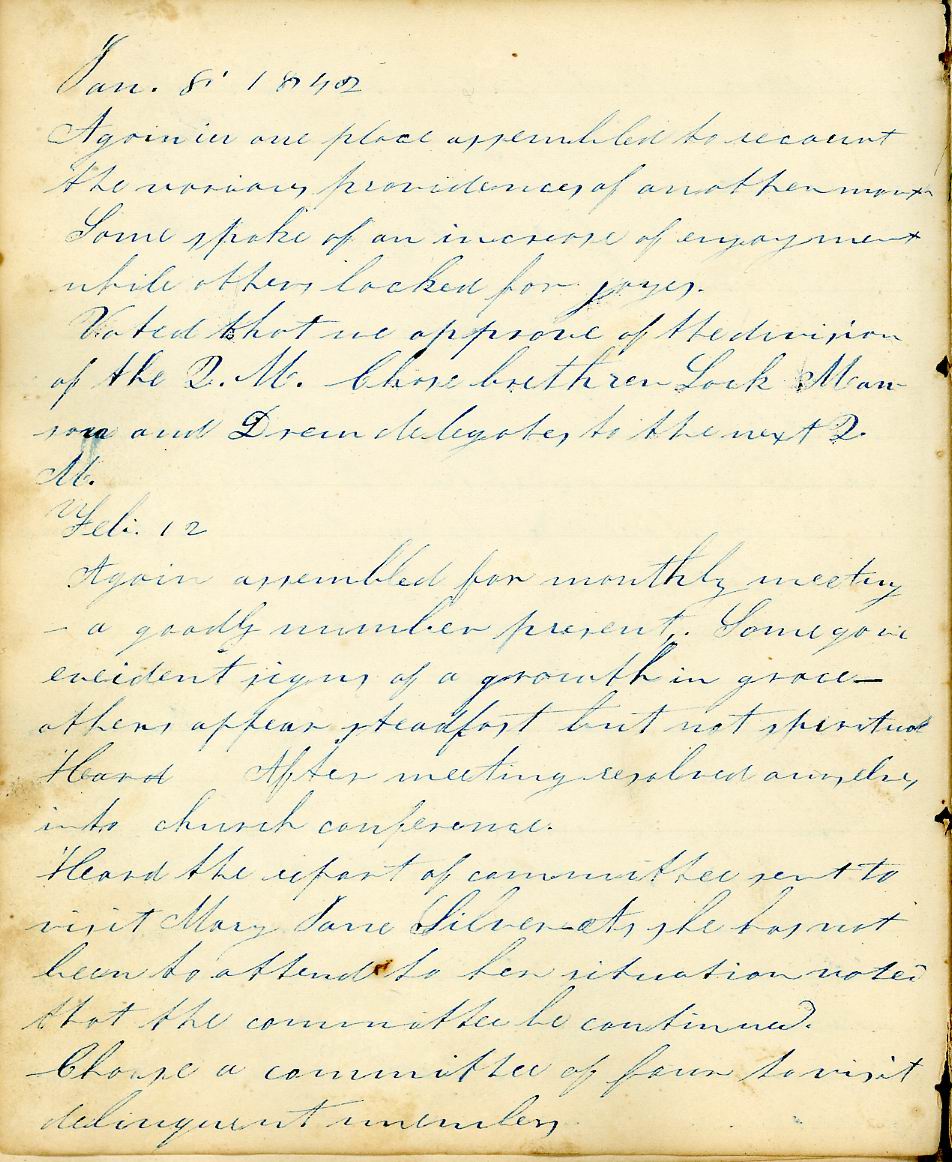 Jan. 8' 1842
Again in one place assembled to recount
the various providences of another mont
Some spoke of an increase of enjoyment
while others lacked for joyes.
Voted that we approve of the division
of the Q. M. Chose brethren Lock Man
son and Drew delegates to the next Q.
M.
Feb. 12
Again assembled for monthly meeting
- a goodly number present. Some gave
evident signs of a growth in grace—
others appear steadfast but not spiritual
Heard After meeting resolved ourselves
into church conference.
Heard the report of committee sent to
visit Mary Jane Silver—As she has not
been to attend to her situation voted
that the committee be continued.
Choose a committee of four to visit
delinquent members